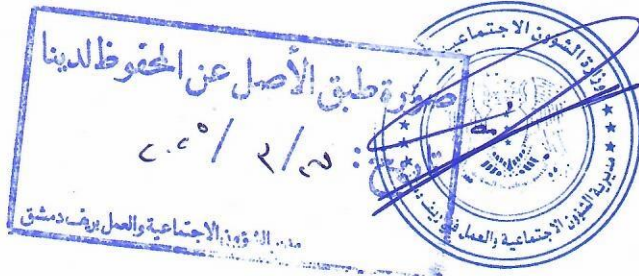 صورة طبق الأصل عن المحفوظ لدينا
تاريخ: / ٣ / ٢٠٢٥
مدير الشؤون الاجتماعية والعمل بريف دمشق
وزارة الشؤون الاجتماعية
مديرية الشؤون الاجتماعية والعمل في ريف